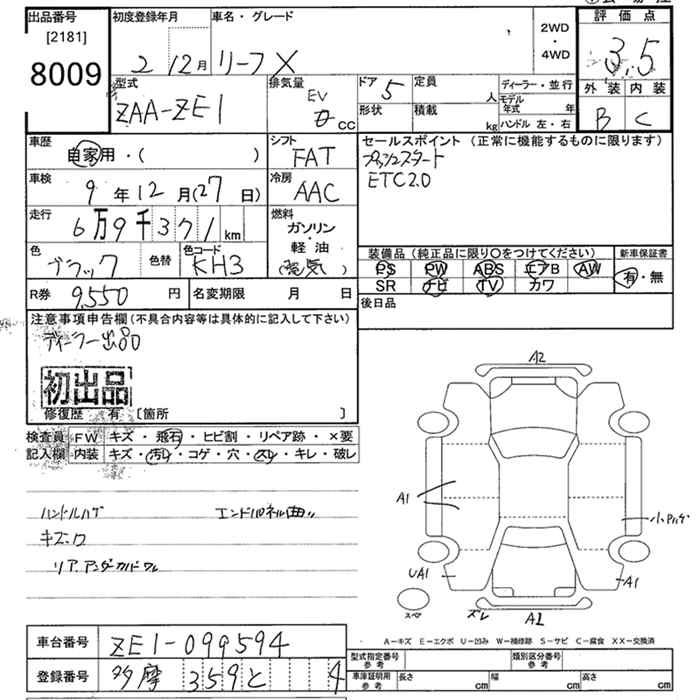 出品番号
[2181]
8009
初度登録年月
2 12月
車名・グレード
リーフ X
2WD
・
4WD
評価点
3.5
外装 内装
B C
型式
ZAA-ZE1
排気量
EV
cc
ドア
5
定員
人
形状
積載
kg
ディーラー・並行
モデル年式 年
ハンドル 左・右
車歴
自家用・( )
シフト
FAT
セールスポイント (正常に機能するものに限ります)
プッシュスタート
ETC2.0
車検
9年12月(27日)
冷房
AAC
走行
6万9千371km
燃料
ガソリン
軽・油
(電気)
色
ブラック
色替
色コード
KH3
装備品 (純正品に限り○をつけてください)
PS PW ABS エアB AW
SR ナビ TV カワ
新車保証書
有・無
R券
9,550円
名変期限 月 日
後日品
注意事項申告欄 (不具合内容等は具体的に記入して下さい)
ディーラー出品
初出品
修復歴 有 [箇所 ]
検査員記入欄
FW キズ・飛石・ヒビ割・リペア跡・×要
内装 キズ・汚レ・コゲ・穴・スレ・キレ・破レ
ハンドルハゲ
エンドパネル曲リ
キズ・凹
リアアンダーカバーワレ
A2
A1
小凹キズ
UA1
A1
スペア
ズレ
A2
A-キズ E-エクボ U-凹み W-補修跡 S-サビ C-腐食 XX-交換済
車台番号
ZE1-099594
登録番号
多摩 359 と 4
型式指定番号
参考
類別区分番号
参考
車庫証明用
参考
長さ cm
幅 cm
高さ cm